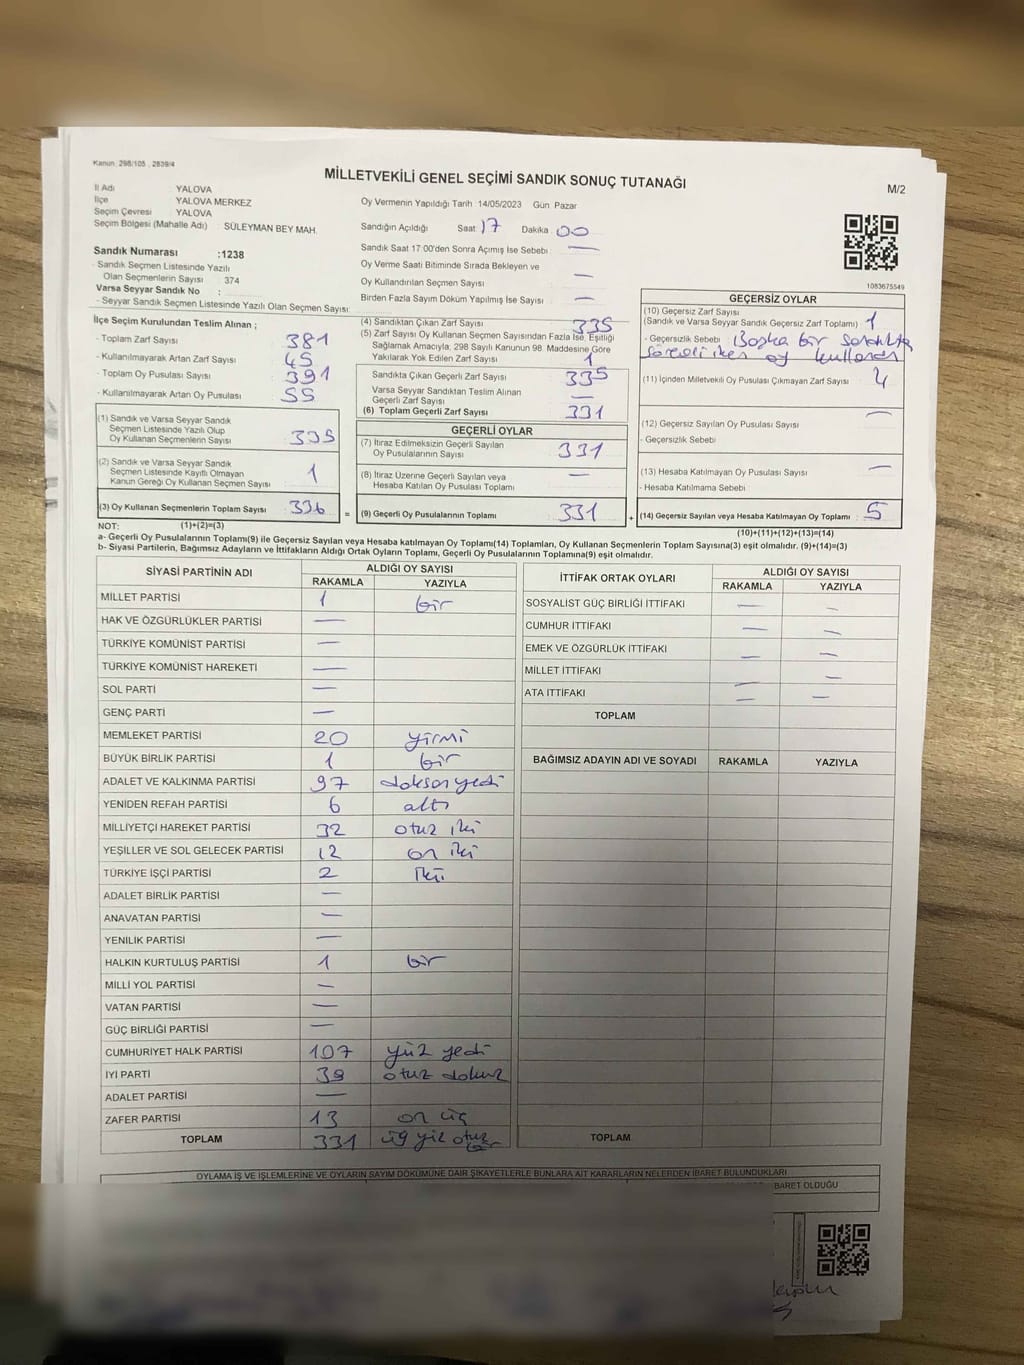 Kanun: 298/105 , 2839/4
MİLLETVEKİLİ GENEL SEÇİMİ SANDIK SONUÇ TUTANAĞI
M/2
İl Adı : YALOVA
İlçe : YALOVA MERKEZ
Seçim Çevresi : YALOVA
Seçim Bölgesi (Mahalle Adı) : SÜLEYMAN BEY MAH.
Oy Vermenin Yapıldığı Tarih :14/05/2023 Gün: Pazar
Sandığın Açıldığı Saat 17 Dakika 00
Sandık Saat 17:00'den Sonra Açılmış İse Sebebi : —
Oy Verme Saati Bitiminde Sırada Bekleyen ve
Oy Kullandırılan Seçmen Sayısı : —
Birden Fazla Sayım Döküm Yapılmış İse Sayısı : —
Sandık Numarası :1238
- Sandık Seçmen Listesinde Yazılı
Olan Seçmenlerin Sayısı : 374
Varsa Seyyar Sandık No :
- Seyyar Sandık Seçmen Listesinde Yazılı Olan Seçmen Sayısı:
1083675549
İlçe Seçim Kurulundan Teslim Alınan ;
- Toplam Zarf Sayısı : 381
- Kullanılmayarak Artan Zarf Sayısı : 45
- Toplam Oy Pusulası Sayısı : 391
- Kullanılmayarak Artan Oy Pusulası : 55
(1) Sandık ve Varsa Seyyar Sandık
Seçmen Listesinde Yazılı Olup
Oy Kullanan Seçmenlerin Sayısı : 335
(2) Sandık ve Varsa Seyyar Sandık
Seçmen Listesinde Kayıtlı Olmayan
Kanun Gereği Oy Kullanan Seçmen Sayısı : 1
(3) Oy Kullanan Seçmenlerin Toplam Sayısı : 336
(4) Sandıktan Çıkan Zarf Sayısı : 335
(5) Zarf Sayısı Oy Kullanan Seçmen Sayısından Fazla İse, Eşitliği
Sağlamak Amacıyla, 298 Sayılı Kanunun 98. Maddesine Göre
Yakılarak Yok Edilen Zarf Sayısı : 1
Sandıkta Çıkan Geçerli Zarf Sayısı : 335
Varsa Seyyar Sandıktan Teslim Alınan
Geçerli Zarf Sayısı : —
(6) Toplam Geçerli Zarf Sayısı : 331
GEÇERLİ OYLAR
(7) İtiraz Edilmeksizin Geçerli Sayılan
Oy Pusulalarının Sayısı : 331
(8) İtiraz Üzerine Geçerli Sayılan veya
Hesaba Katılan Oy Pusulası Toplamı : —
= (9) Geçerli Oy Pusulalarının Toplamı : 331
GEÇERSİZ OYLAR
(10) Geçersiz Zarf Sayısı
(Sandık ve Varsa Seyyar Sandık Geçersiz Zarf Toplamı) : 1
- Geçersizlik Sebebi : Başka bir sandıkta
görevli iken oy kullandı
(11) İçinden Milletvekili Oy Pusulası Çıkmayan Zarf Sayısı : 4
(12) Geçersiz Sayılan Oy Pusulası Sayısı : —
- Geçersizlik Sebebi :
(13) Hesaba Katılmayan Oy Pusulası Sayısı : —
- Hesaba Katılmama Sebebi :
+ (14) Geçersiz Sayılan veya Hesaba Katılmayan Oy Toplamı : 5
NOT: (1)+(2)=(3) (10)+(11)+(12)+(13)=(14)
a- Geçerli Oy Pusulalarının Toplamı(9) ile Geçersiz Sayılan veya Hesaba katılmayan Oy Toplamı(14) Toplamları, Oy Kullanan Seçmenlerin Toplam Sayısına(3) eşit olmalıdır. (9)+(14)=(3)
b- Siyasi Partilerin, Bağımsız Adayların ve İttifakların Aldığı Ortak Oyların Toplamı, Geçerli Oy Pusulalarının Toplamına(9) eşit olmalıdır.
SİYASİ PARTİNİN ADI ALDIĞI OY SAYISI
RAKAMLA YAZIYLA
MİLLET PARTİSİ 1 bir
HAK VE ÖZGÜRLÜKLER PARTİSİ —
TÜRKİYE KOMÜNİST PARTİSİ —
TÜRKİYE KOMÜNİST HAREKETİ —
SOL PARTİ —
GENÇ PARTİ —
MEMLEKET PARTİSİ 20 yirmi
BÜYÜK BİRLİK PARTİSİ 1 bir
ADALET VE KALKINMA PARTİSİ 97 doksan yedi
YENİDEN REFAH PARTİSİ 6 altı
MİLLİYETÇİ HAREKET PARTİSİ 32 otuz iki
YEŞİLLER VE SOL GELECEK PARTİSİ 12 on iki
TÜRKİYE İŞÇİ PARTİSİ 2 iki
ADALET BİRLİK PARTİSİ —
ANAVATAN PARTİSİ —
YENİLİK PARTİSİ —
HALKIN KURTULUŞ PARTİSİ 1 bir
MİLLİ YOL PARTİSİ —
VATAN PARTİSİ —
GÜÇ BİRLİĞİ PARTİSİ —
CUMHURİYET HALK PARTİSİ 107 yüz yedi
İYİ PARTİ 39 otuz dokuz
ADALET PARTİSİ —
ZAFER PARTİSİ 13 on üç
TOPLAM 331 üç yüz otuz bir
İTTİFAK ORTAK OYLARI ALDIĞI OY SAYISI
RAKAMLA YAZIYLA
SOSYALİST GÜÇ BİRLİĞİ İTTİFAKI — —
CUMHUR İTTİFAKI — —
EMEK VE ÖZGÜRLÜK İTTİFAKI — —
MİLLET İTTİFAKI — —
ATA İTTİFAKI — —
TOPLAM
BAĞIMSIZ ADAYIN ADI VE SOYADI RAKAMLA YAZIYLA
TOPLAM
OYLAMA İŞ VE İŞLEMLERİNE VE OYLARIN SAYIM DÖKÜMÜNE DAİR ŞİKAYETLERLE BUNLARA AİT KARARLARIN NELERDEN İBARET BULUNDUKLARI
BARET OLDUĞU